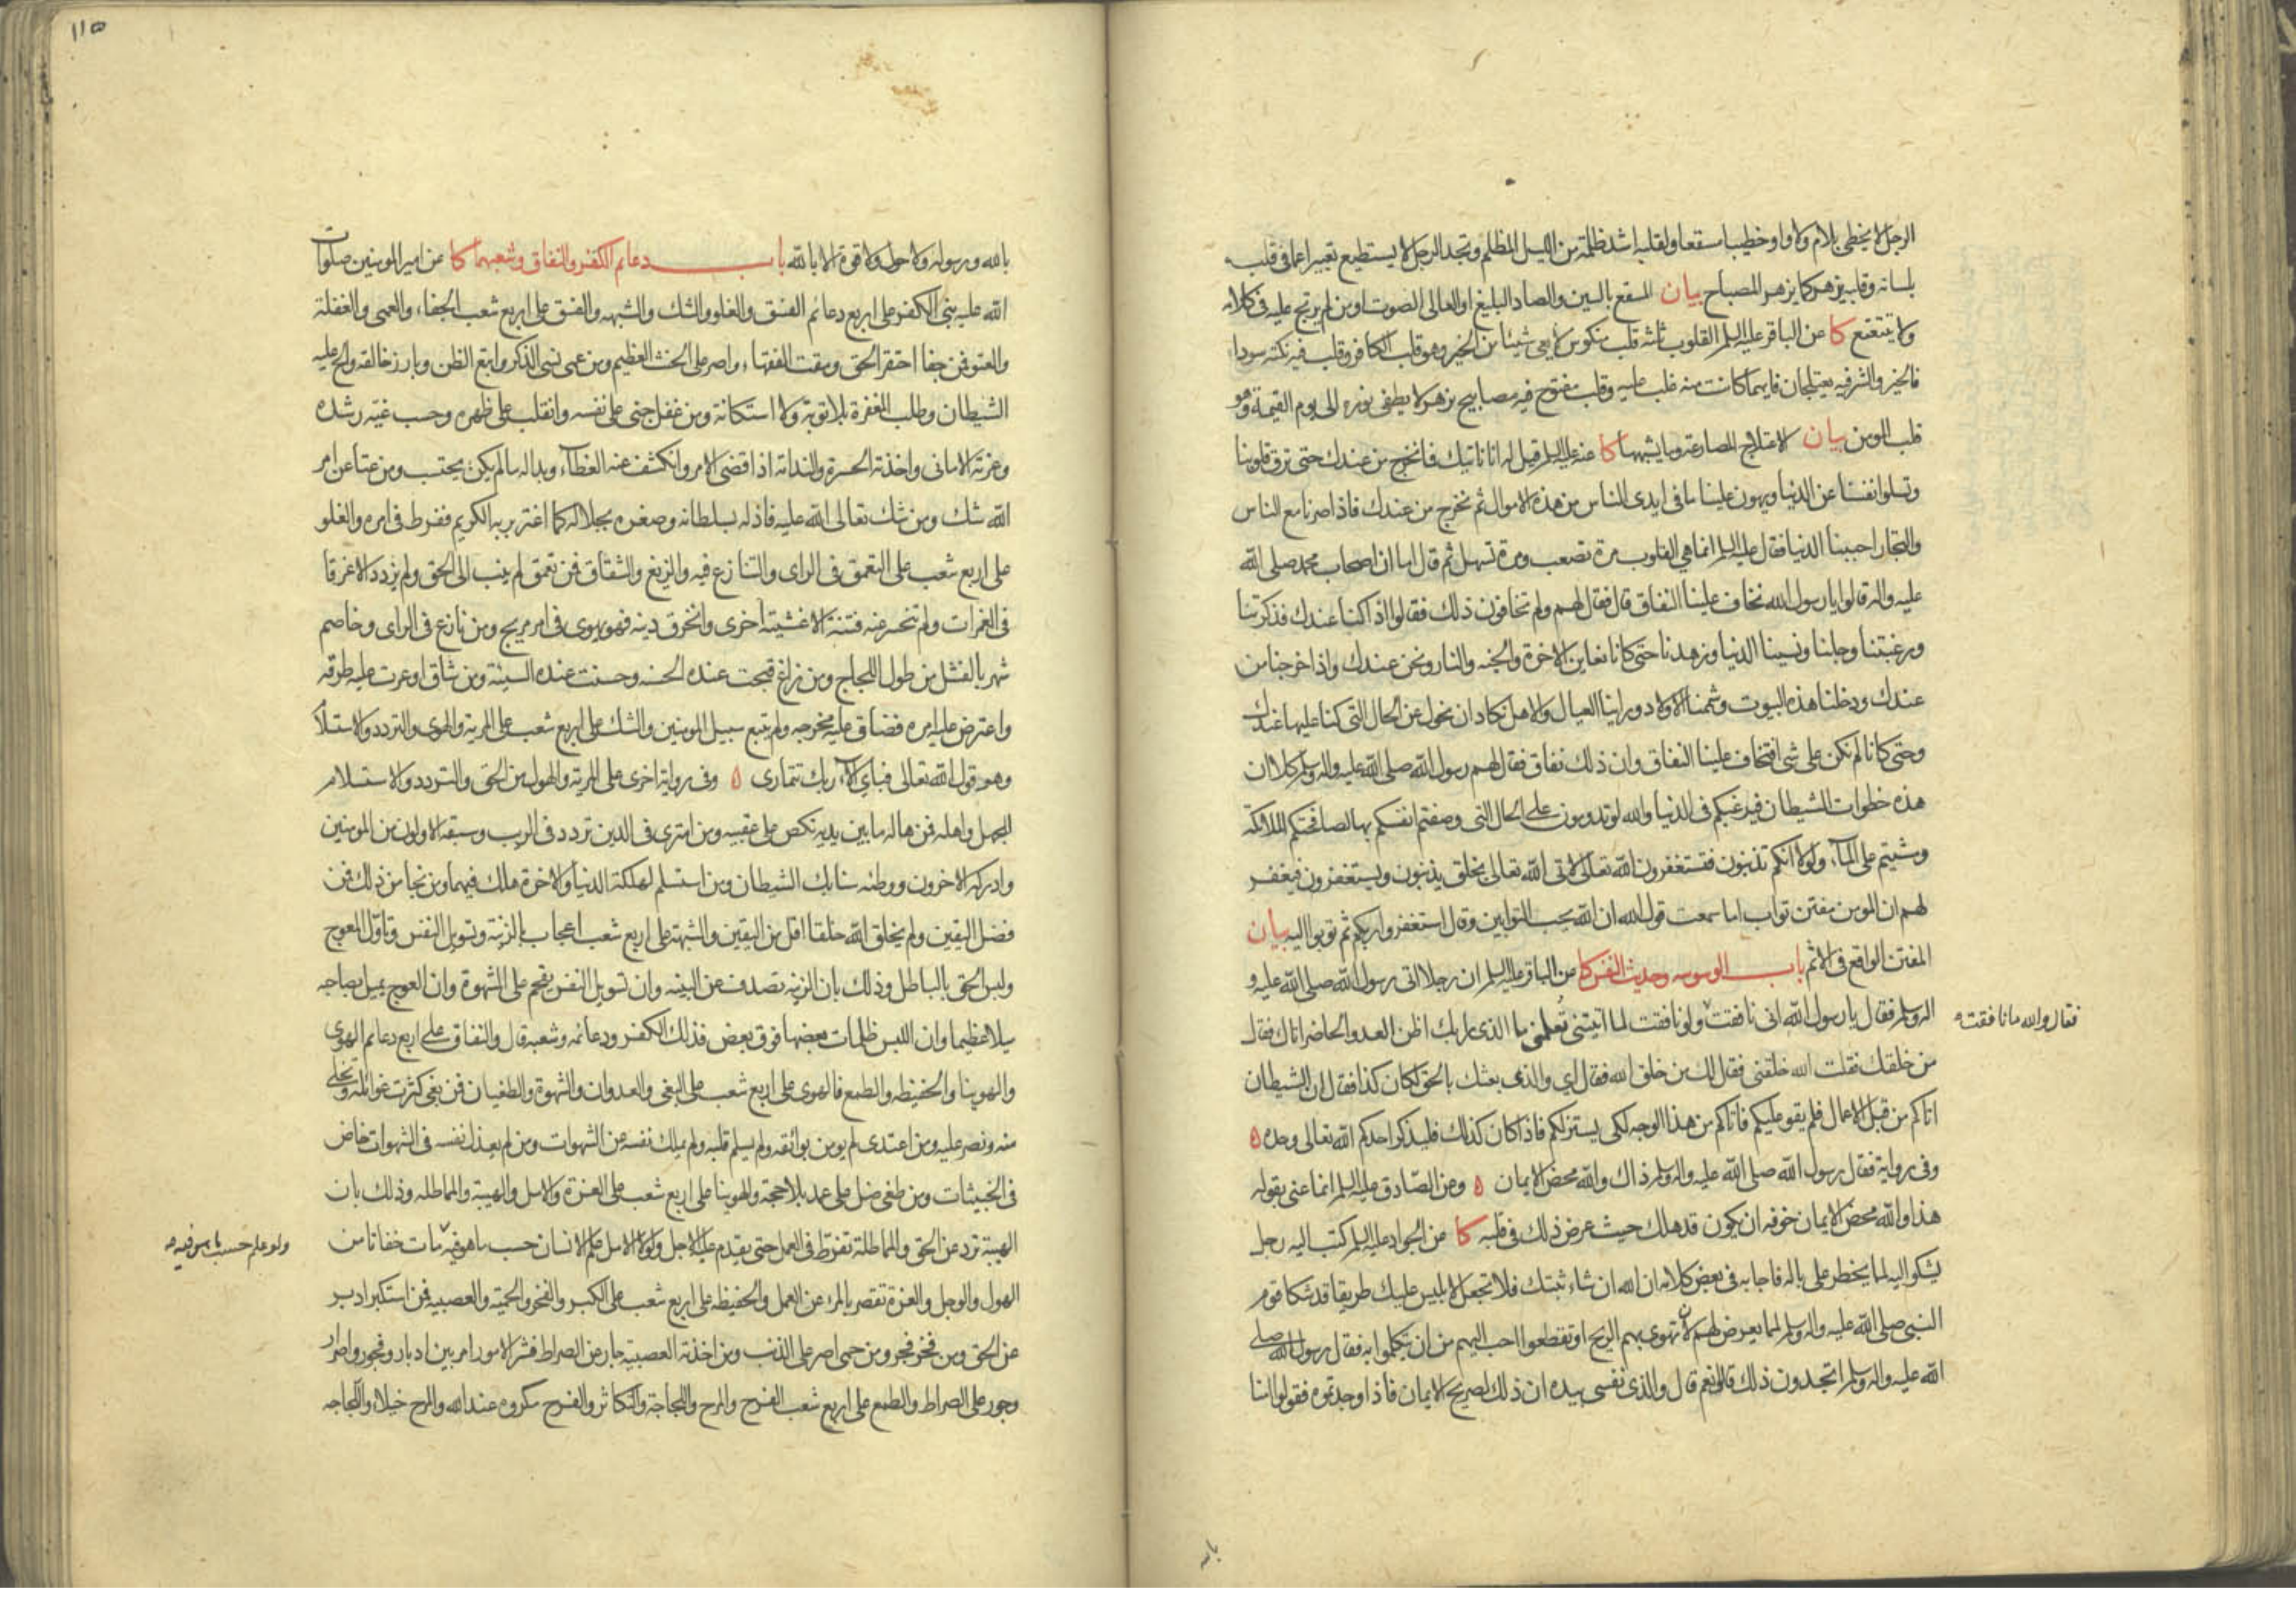 الرجل لا يخطى بلام ولا واو خطيبا مسقعا ولقلبه اشد ظلمة من الليل المظلم وتجد الرجل لا يستطيع تعبيرا عما في قلبه
بلسانه وقلبه يزهر كما يزهر المصباح بيان المسقع بالسين والصاد البليغ او العالى الصوت او من لم يرتج عليه في كلامه
ولا يتتعتع كا عن الباقر عليه السلم القلوب ثلثة قلب منكوس لا يعى شيئا من الخير وهو قلب الكافر وقلب فيه نكتة سودا
فالخير والشر فيه يعتلجان فايهما كانت منه غلب عليه وقلب مفتوح فيه مصابيح يزهر لا يطفى نوره الى يوم القيمة وهو
قلب المومن بيان الاعتلاج المصارعة وما يشبهها كا عنه عليه السلم قيل له انا ناتيك فما نخرج من عندك حتى ترق قلوبنا
وتسلوا نفسنا عن الدنيا ويهون علينا ما في ايدى الناس من هذه الاموال ثم نخرج من عندك فاذا صرنا مع الناس
والتجار احببنا الدنيا فقال عليه السلم انما هي القلوب مرة تصعب ومرة تسهل ثم قال اما ان اصحاب محمد صلى الله
عليه واله قالوا يا رسول الله نخاف علينا النفاق قال فقال لهم ولم تخافون ذلك فقالوا اذا كنا عندك فذكرتنا
ورغبتنا وجلنا ونسينا الدنيا وزهدنا حتى كانا نعاين الاخرة والجنه والنار ونحن عندك واذا خرجنا من
عندك ودخلنا هذه البيوت وشممنا الاولاد وراينا العيال والاهل نكاد ان نحول عن الحال التى كنا عليها عندك
وحتى كانا لم نكن على شى افتخاف علينا النفاق وان ذلك نفاق فقال لهم رسول الله صلى الله عليه واله وسلم كلا ان
هذه خطوات الشيطان فيرغبكم في الدنيا والله لو تدومون على الحال التى وصفتم انفسكم بها لصافحتكم الملائكة
ومشيتم على المآء ولولا انكم تذنبون فتستغفرون الله تعالى لاتى الله تعالى بخلق يذنبون ويستغفرون فيغفر
لهم ان المومن مفتن تواب اما سمعت قول الله ان الله يحب التوابين وقال استغفروا ربكم ثم توبوا اليه بيان
المفتن الواقع في الاثم باب الوسوسه وحديث النفس كا عن الباقر عليه السلم ان رجلا اتى رسول الله صلى الله عليه و
اله وسلم فقال يا رسول الله انى نافقت ولو نافقت لما اتيتنى تعلمنى ما الذى رابك اظن العدو الحاضر اتاك فقال
فقال والله ما نافقت
من خلقك فقلت الله خلقنى فقال لك من خلق الله فقال اي والذى بعثك بالحق لكان كذا فقال ان الشيطان
اتاكم من قبل الاعمال فلم يقو عليكم فاتاكم من هذا الوجه لكى يستزلكم فاذا كان كذلك فليذكر احدكم الله تعالى وحده ٥
وفى رواية فقال رسول الله صلى الله عليه واله وسلم ذاك والله محض الايمان ٥ وعن الصادق عليه السلم انما عنى بقوله
هذا والله محض الايمان خوفه ان يكون قد هلك حيث عرض ذلك في قلبه كا عن الجواد عليه السلم كتب اليه رجل
يشكو اليه لما يخطر على باله فاجابه في بعض كلامه ان الله ان شاء ثبتك فلا تجعل لابليس عليك طريقا قد شكا قوم
النبى صلى الله عليه واله وسلم لما يعرض لهم لان تهوى بهم الريح او تقطعوا احب اليهم من ان يتكلموا به فقال رسول الله صلى
الله عليه واله وسلم اتجدون ذلك قالوا نعم قال والذى نفسى بيده ان ذلك لصريح الايمان فاذا وجدتموه فقولوا امنا
بالله
١١٥
بالله ورسوله ولا حول ولا قوة الا بالله باب دعائم الكفر والنفاق وشعبهما كا عن امير المومنين صلوات
الله عليه بنى الكفر على اربع دعائم الفسق والغلو والشك والشبهه والفسق على اربع شعب الجفاء والعمى والغفلة
والعتو فمن جفا احتقر الحق ومقت الفقهاء واصر على الحنث العظيم ومن عمى نسى الذكر واتبع الظن وبارز خالقه والح عليه
الشيطان وطلب المغفرة بلا توبة ولا استكانة ومن غفل جنى على نفسه وانقلب على ظهره وحسب غيه رشده
وغرته الامانى واخذته الحسرة والندامة اذا قضى الامر وانكشف عنه الغطآء وبدا له ما لم يكن يحتسب ومن عتا عن امر
الله شك ومن شك تعالى الله عليه فاذله بسلطانه وصغره بجلاله كما اغتر بربه الكريم ففرط في امره والغلو
على اربع شعب على التعمق فى الراى والتنازع فيه والزيغ والشقاق فمن تعمق لم ينب الى الحق ولم يزدد الا غرقا
في الغمرات ولم تنحسر عنه فتنة الا غشيته اخرى وانخرق دينه فهو يهوى فى امر مريج ومن نازع فى الراى وخاصم
شهر بالفشل من طول اللجاج ومن زاغ قبحت عنده الحسنه وحسنت عنده السيئة ومن شاق اوعرت عليه طرقه
واعترض عليه امره فضاق عليه مخرجه ولم يتبع سبيل المومنين والشك على اربع شعب على المرية والهوى والتردد والاستسلام
وهو قول الله تعالى فباي آلاء ربك تتمارى ٥ وفى رواية اخرى على المرية والهول من الحق والتردد والاستسلام
للجهل واهله فمن هاله ما بين يديه نكص على عقبيه ومن امترى فى الدين تردد فى الريب وسبقه الاولون من المومنين
وادركه الاخرون ووطئه سنابك الشيطان ومن استسلم لهلكة الدنيا والاخرة هلك فيهما ومن نجا من ذلك فمن
فضل اليقين ولم يخلق الله خلقا اقل من اليقين والشبهة على اربع شعب اعجاب بالزينة وتسويل النفس وتاول العوج
ولبس الحق بالباطل وذلك بان الزينه تصدف عن البينه وان تسويل النفس يقحم على الشهوة وان العوج يميل بصاحبه
ميلا عظيما وان اللبس ظلمات بعضها فوق بعض فذلك الكفر ودعائمه وشعبه قال والنفاق على اربع دعائم الهوى
والهوينا والحفيظه والطمع فالهوى على اربع شعب على البغى والعدوان والشهوة والطغيان فمن بغى كثرت غوائله وتخلى
منه ونصر عليه ومن اعتدى لم يومن بوائقه ولم يسلم قلبه ولم يملك نفسه عن الشهوات ومن لم يعذل نفسه فى الشهوات خاض
فى الخبيثات ومن طغى ضل على عمد بلا حجة والهوينا على اربع شعب على الغرة والامل والهيبة والمماطله وذلك بان
الهيبة ترد عن الحق والمماطلة تفرط فى العمل حتى يقدم عليه الاجل ولولا الامل علم الانسان حسب ما هو فيه مات خفاتا من
ولو علم حسب ما هو فيه
الهول والوجل والغرة تقصر بالمرء عن العمل والحفيظه على اربع شعب على الكبر والفخر والحمية والعصبيه فمن استكبر ادبر
عن الحق ومن فخر فجر ومن حمى اصر على الذنب ومن اخذته العصبية جار عن الصراط فشر الامور امر بين ادبار وفجور واصرار
وجور على الصراط والطمع على اربع شعب الفرح والمرح واللجاجة والتكاثر والفرح مكروه عند الله والمرح خيلاء واللجاجه